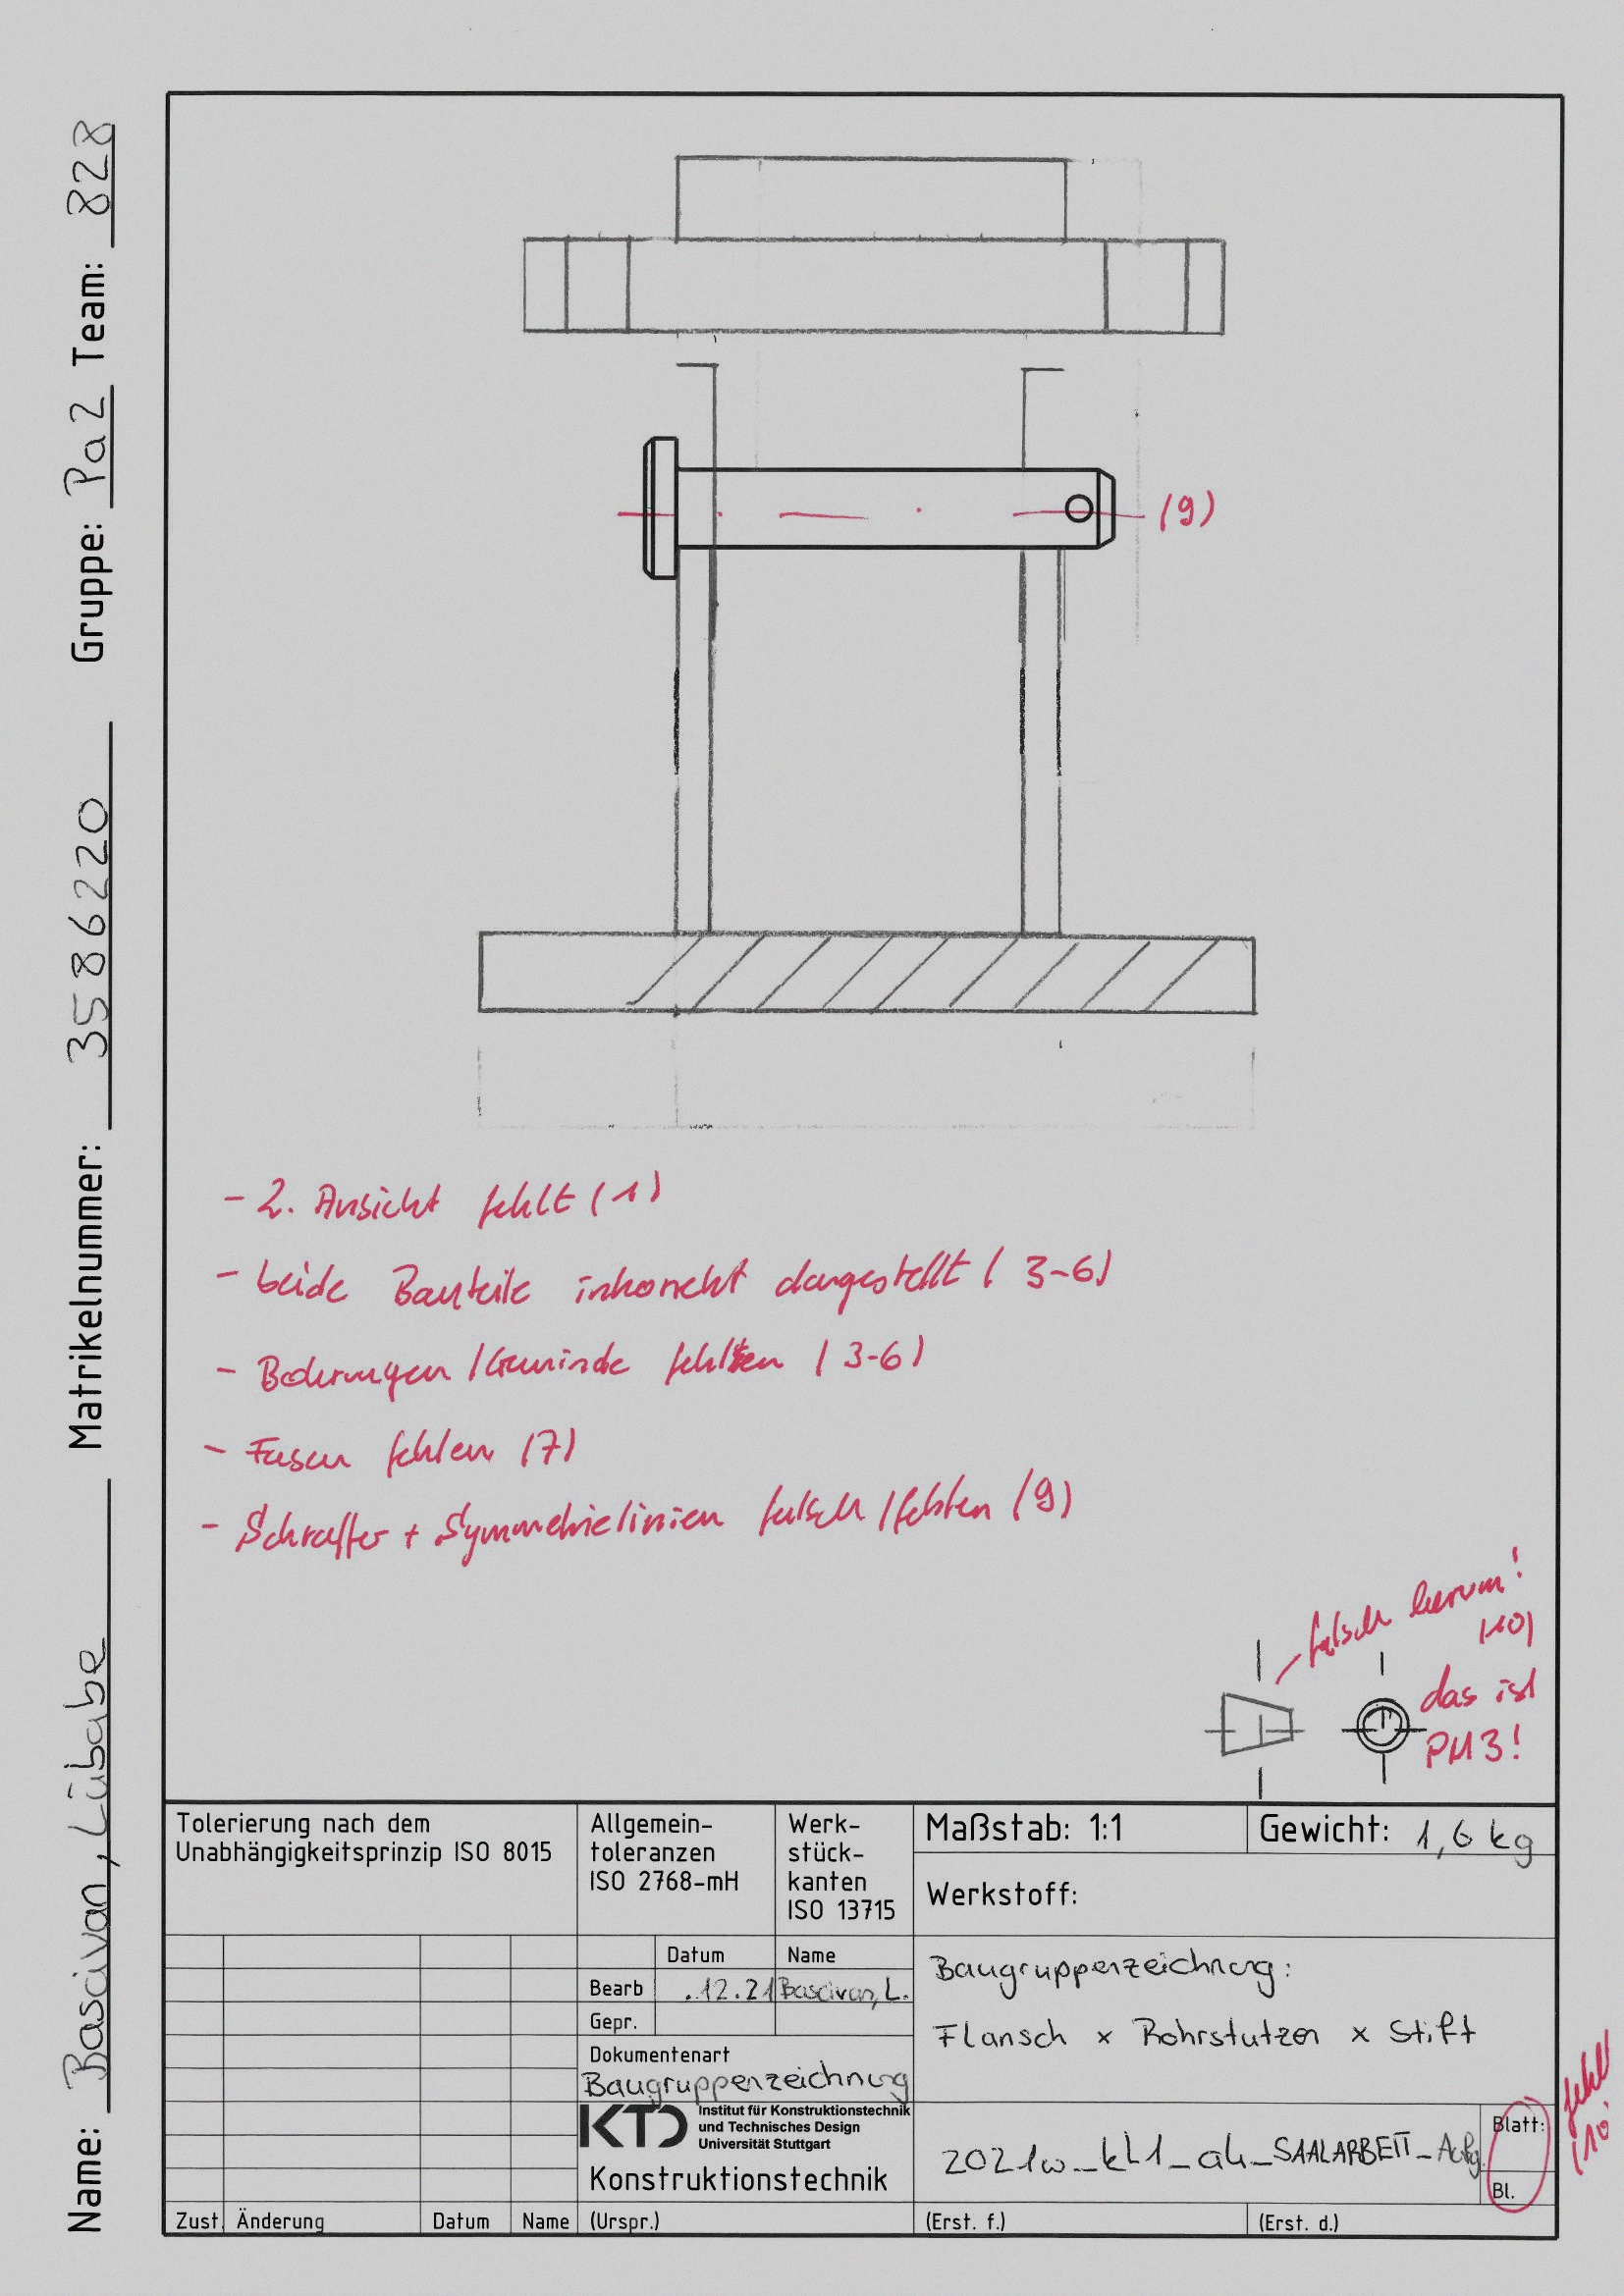 Name: Bascivan, Lübabe Matrikelnummer: 3586220 Gruppe: Pa2 Team: 828
(9)
- 2. Ansicht fehlt (1)
- beide Bauteile inkorrekt dargestellt (3-6)
- Bohrungen / Gewinde fehlen (3-6)
- Fasen fehlen (7)
- Schraffur + Symmetrielinien falsch / fehlen (9)
falsch herum!
(10)
das ist
PM3!
Tolerierung nach dem
Unabhängigkeitsprinzip ISO 8015
Allgemein-
toleranzen
ISO 2768-mH
Werk-
stück-
kanten
ISO 13715
Maßstab: 1:1
Gewicht: 1,6 kg
Werkstoff:
Datum Name
Bearb .12.21 Bascivan, L.
Gepr.
Dokumentenart
Baugruppenzeichnung
Baugruppenzeichnung:
Flansch x Rohrstutzen x Stift
KTD Institut für Konstruktionstechnik
und Technisches Design
Universität Stuttgart
Konstruktionstechnik
2021w_kL1_a4_SAALARBEIT_Aufg.
Blatt:
Bl.
fehlt
(10)
Zust. Änderung Datum Name (Urspr.) (Erst. f.) (Erst. d.)